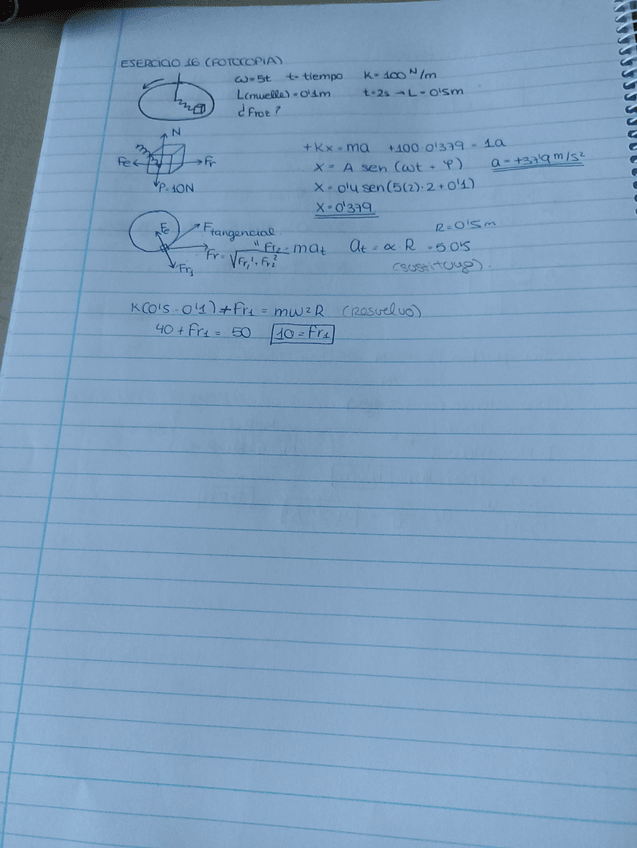 EJERCICIO 16 (FOTOCOPIA)
ω=5t t=tiempo K=100 N/m
L(muelle)=0'1m t=2s→L=0'5m
¿Froz?
N
Fe Fr
P=10N
+Kx=ma +100·0'379=1a
x=A sen(ωt+φ) a=+37'9m/s²
x=0'4sen(5(2)·2+0'1)
x=0'379
Fe Ftangencial
Fr=√Fr₁²+Fr₂² Fr₂=mat at=α·R=5·0'5
R=0'5m
Fr₁
(sustituyo).
K(0'5-0'1)+Fr₁=mω²R (resuelvo)
40+Fr₁=50 10=Fr₁